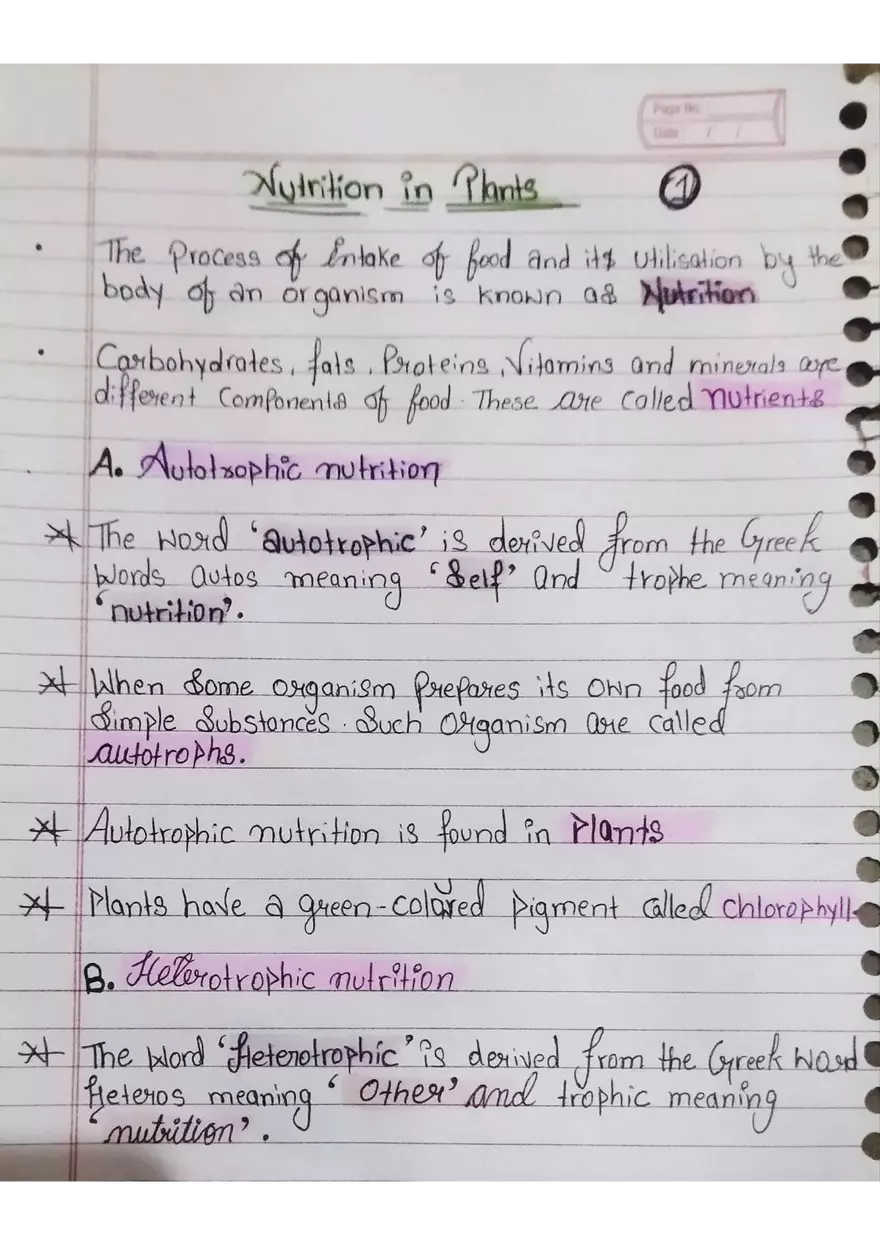 Page No.
Date: / /
Nutrition in Plants ①
• The Process of Intake of food and its utilisation by the
body of an organism is known as Nutrition
• Carbohydrates, fats, Proteins, Vitamins and minerals are
different Components of food. These are called nutrients
A. Autotrophic nutrition
* The word 'autotrophic' is derived from the Greek
words autos meaning 'Self' and trophe meaning
'nutrition'.
* When Some organism Prepares its own food from
Simple Substances. Such organism are called
autotrophs.
* Autotrophic nutrition is found in Plants
* Plants have a green-colored pigment called chlorophyll.
B. Heterotrophic nutrition
* The word 'Heterotrophic' is derived from the Greek word
Heteros meaning 'Other' and trophic meaning
'nutrition'.